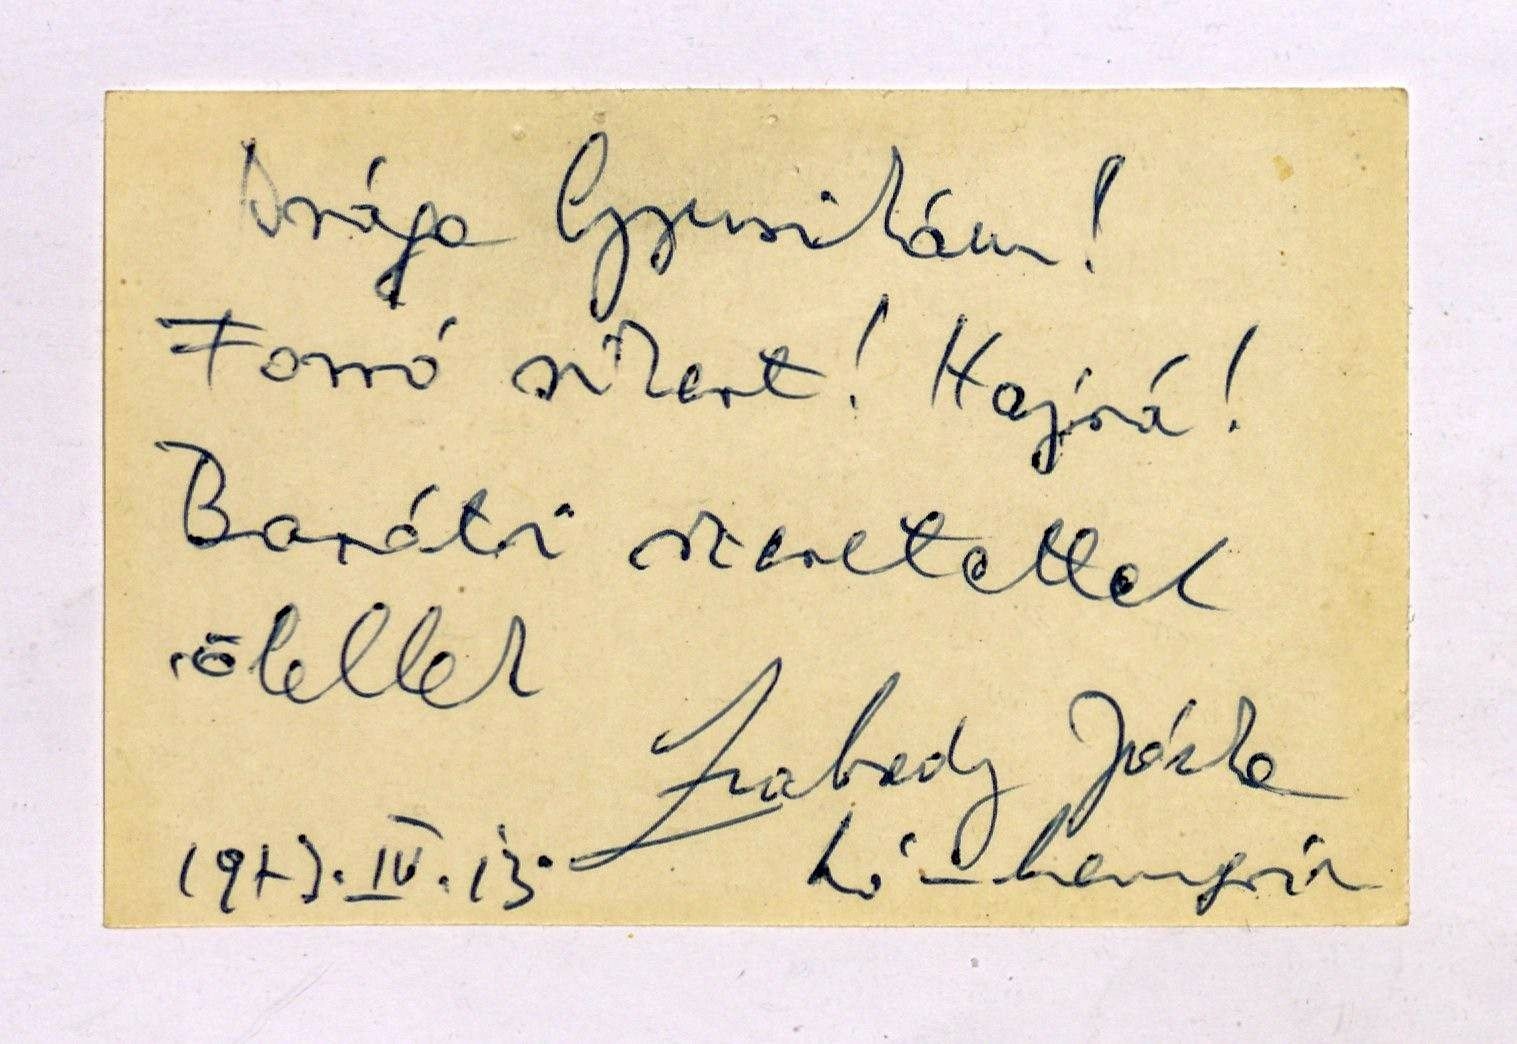 Drága Gyusikám!
Forró sikert! Hajrá!
Baráti szeretettel
ölellek
Szabady Jóska
1973. IV. 13.